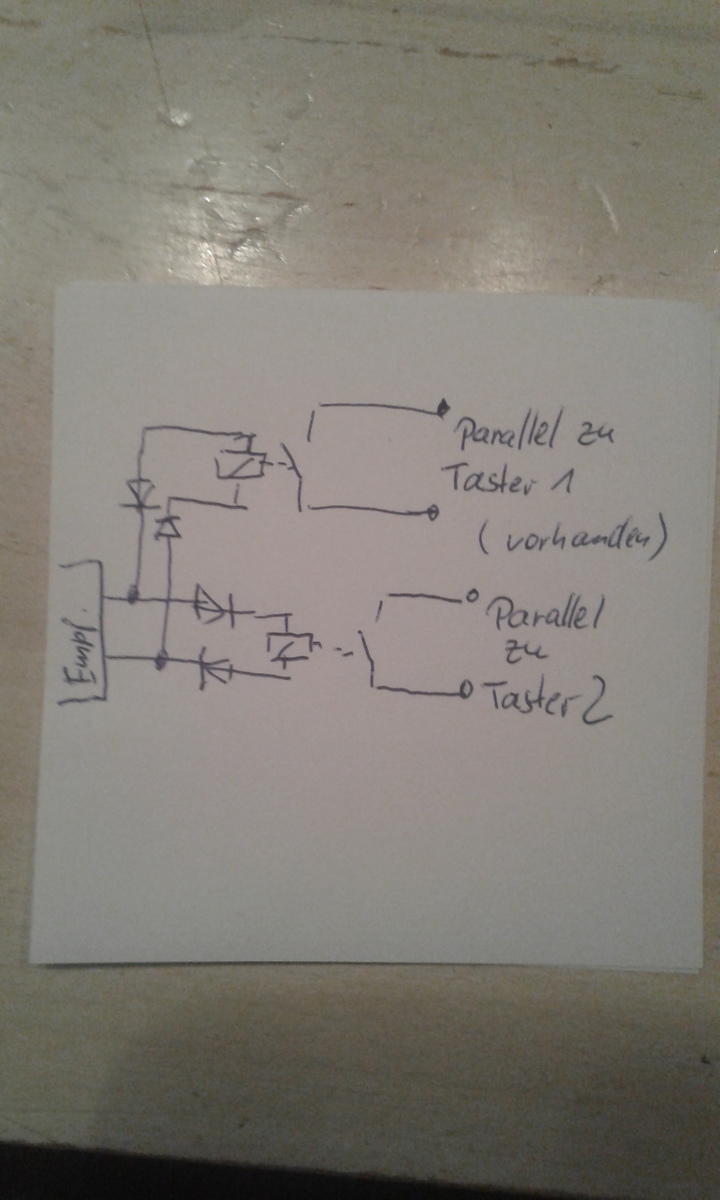 Parallel zu
Taster 1
(vorhanden)
Empf.
Parallel
zu
Taster 2